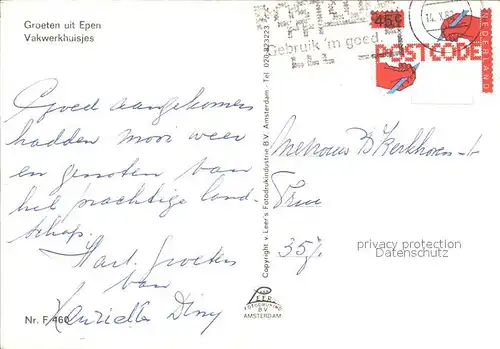 Groeten uit Epen
Vakwerkhuisjes
Goed aangekomen
hadden mooi weer
en genoten van
het prachtige land
schap.
Hart. Groeten
van
Diny
Nr. F 460
Copyright v. Leer's Fotodrukindustrie BV Amsterdam - Tel. 020-223223
FOTODRUKIND
BV
AMSTERDAM
Gebruik 'm goed.
14.X.80
45c
POSTCODE
NEDERLAND
Mevrouw B Kerkhoven-
privacy protection
Datenschutz